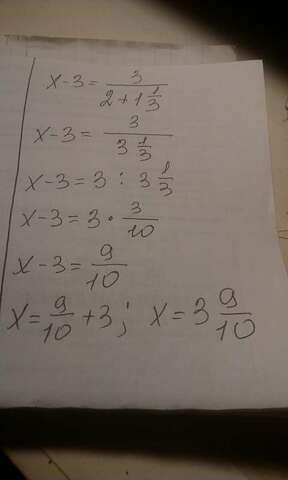 x-3 = 3/(2+1 1/3)
x-3 = 3/(3 1/3)
x-3 = 3 : 3 1/3
x-3 = 3 · 3/10
x-3 = 9/10
x = 9/10 + 3; x = 3 9/10